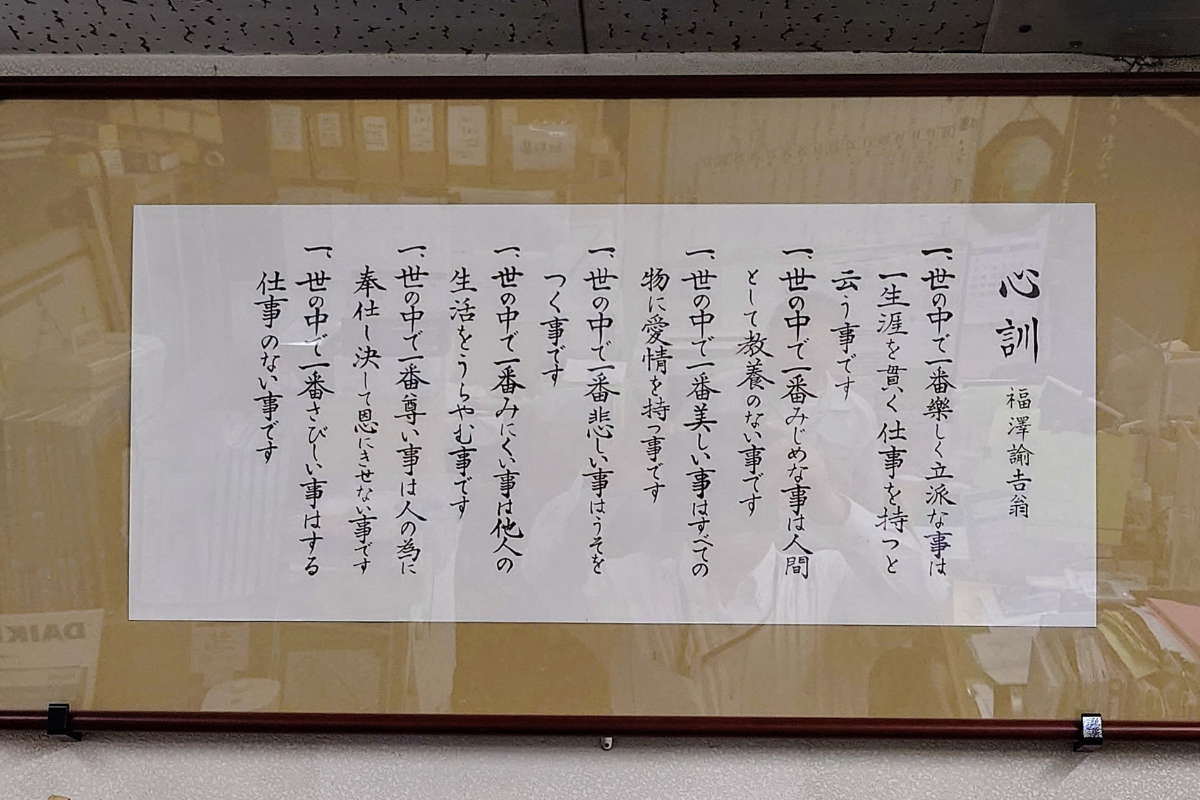 心訓 福澤諭吉翁
一、世の中で一番樂しく立派な事は
一生涯を貫く仕事を持つと
云う事です
一、世の中で一番みじめな事は人間
として教養のない事です
一、世の中で一番美しい事はすべての
物に愛情を持つ事です
一、世の中で一番悲しい事はうそを
つく事です
一、世の中で一番みにくい事は他人の
生活をうらやむ事です
一、世の中で一番尊い事は人の為に
奉仕し決して恩にきせない事です
一、世の中で一番さびしい事はする
仕事のない事です